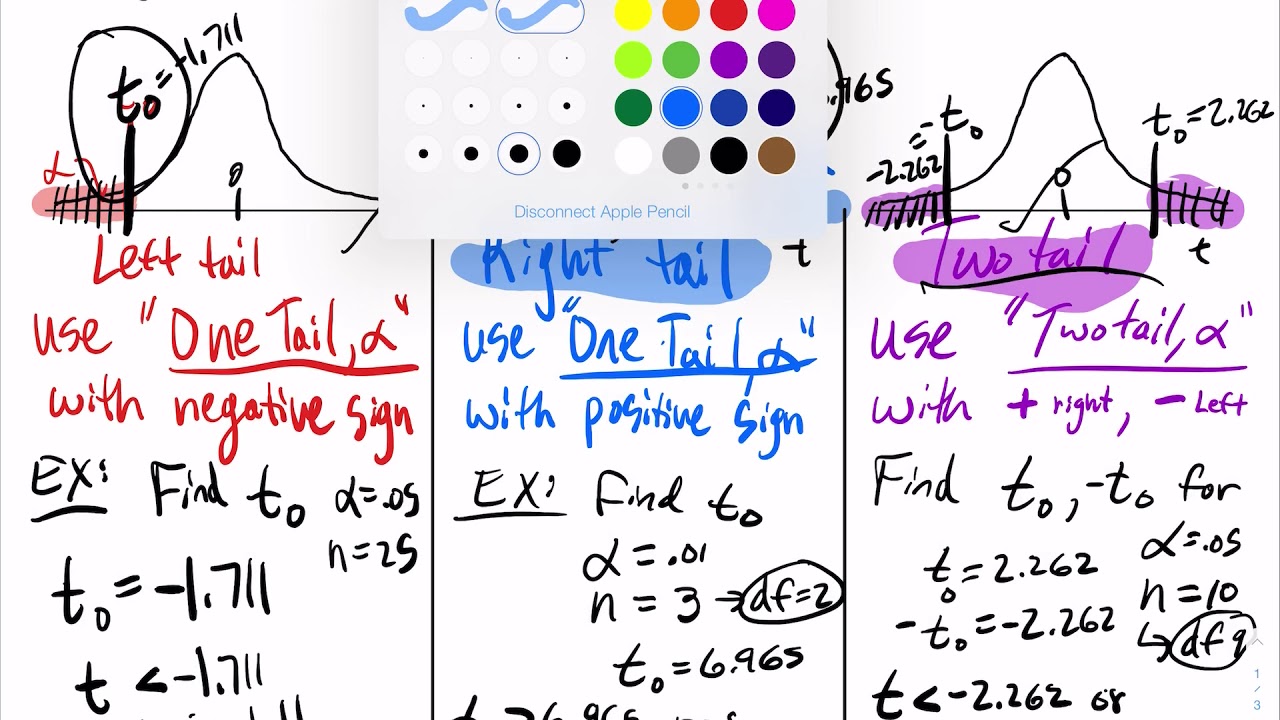 t₀ = -1.711
α
0
Left tail
use "One Tail, α"
with negative sign
EX: Find t₀ α=.05
n=25
t₀ = -1.711
t < -1.711
Disconnect Apple Pencil
.965
t
Right tail
use "One Tail, α"
with positive sign
EX: Find t₀
α = .01
n = 3 → df=2
t₀ = 6.965
-t₀
=
-2.262
t₀ = 2.262
0
t
Two tail
use "Two tail, α"
with + right, - Left
Find t₀, -t₀ for
α=.05
t₀ = 2.262
n=10
-t₀ = -2.262
↳ df 9
t < -2.262 or
1
/
3